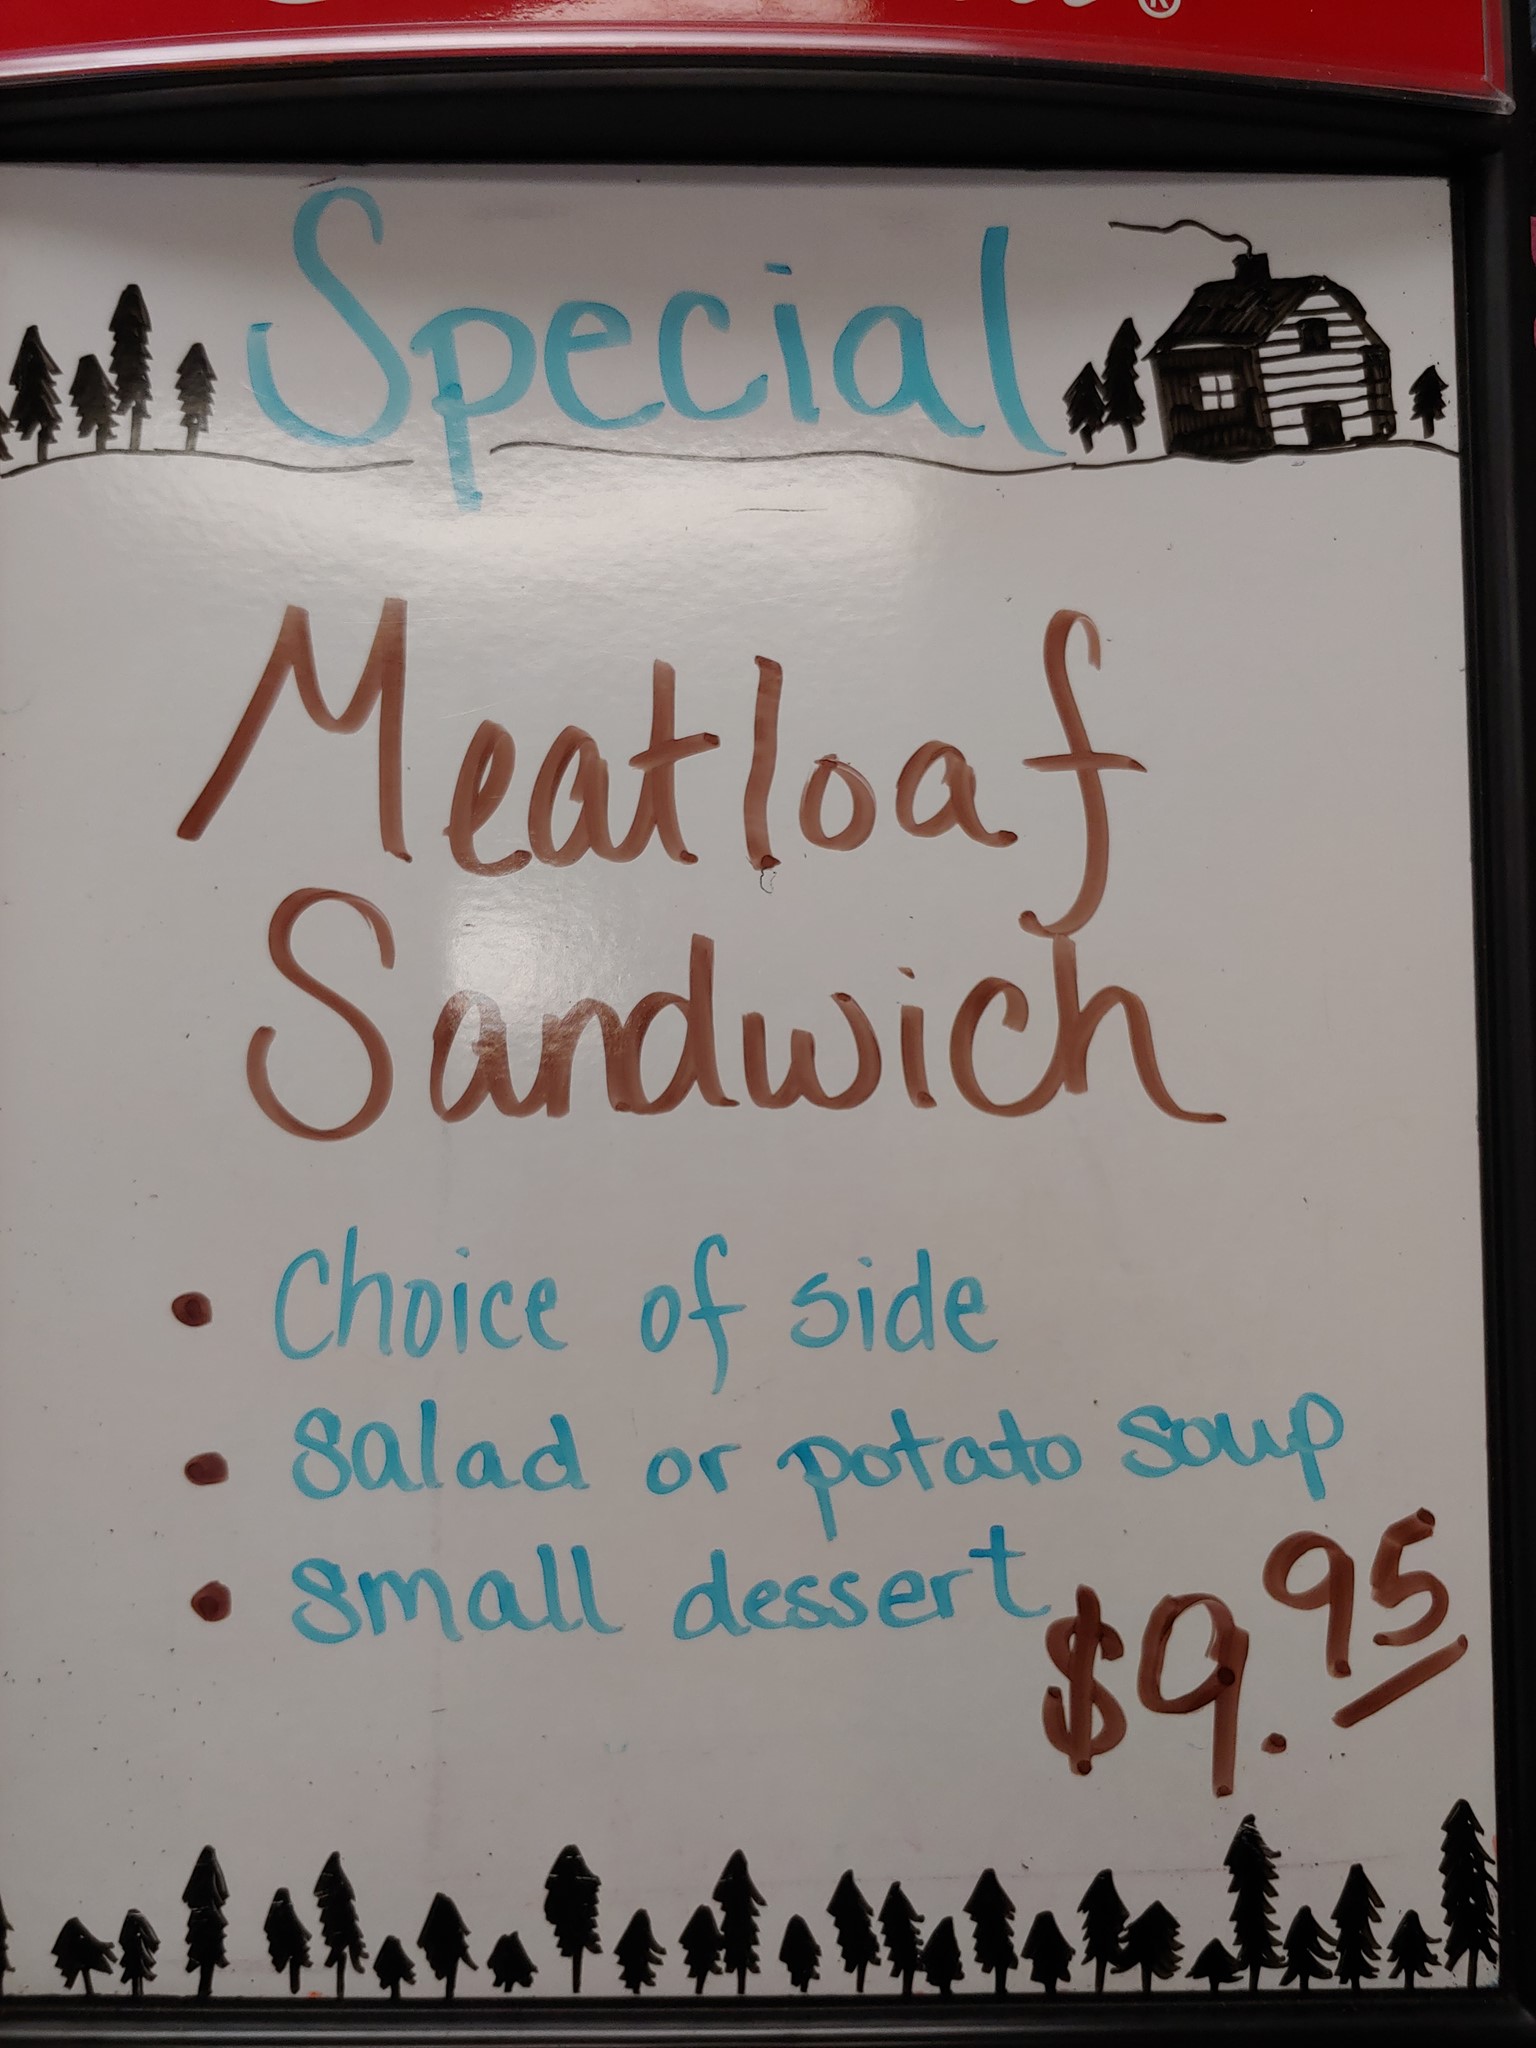 ®
Special
Meatloaf
Sandwich
• Choice of side
• Salad or potato soup
• Small dessert
$9.95